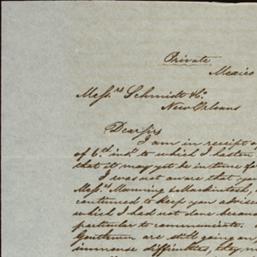 Private
Mexico
Mess.rs Schmidt & Co.
New Orleans
Dear Sirs
I am in receipt of
of 6th inst. to which I hasten
that it may yet be in time for
I was not aware that you
Mess.rs Manning & Mackintosh,
continued to keep you advised
which I had not done because
particular to communicate.
Gentlemen are still going on
immense difficulties, they